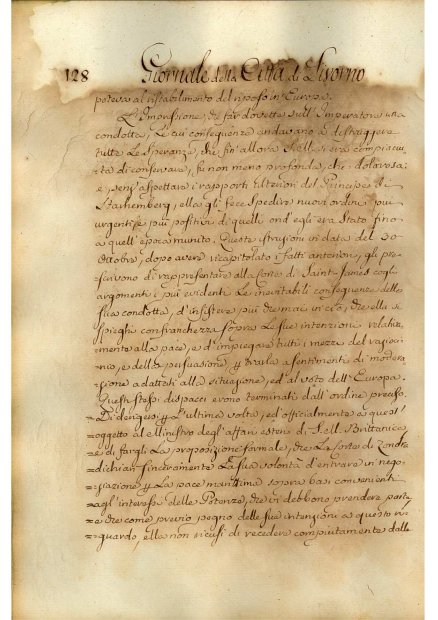 128 Giornale della Città di Livorno
poteva al ristabilimento del riposo in Europa.
L'Impressione, che far dovette sull'Imperatore una
condotta, le cui conseguenze andavano a distruggere
tutte le speranze, che fin'allora Ella si era compiaciu-
ta di conservare, fù non meno profonda, che dolorosa:
e senz'aspettare i rapporti ulteriori del Principe di
Starhemberg, ella gli fece spedire nuovi ordini più
urgenti, e più positivi di quelli ond'egli era stato fino
a quell'epoca munito. Queste istruzioni in data del 30
Ottobre, dopo avere ricapitolato i fatti anteriori, gli pre-
scrivono di rappresentare alla Corte di Saint-James cogli
argomenti i più evidenti le inevitabili conseguenze della
sua condotta, d'insistere più che mai in ciò, che ella si
spieghi con franchezza sopra le sue intenzioni relativa-
mente alla pace, e d'impiegare tutti i mezzi del razioci-
nio, e della persuasione, per trarla a sentimenti di modera-
zione adattati alla situazione, ed al voto dell'Europa.
Questi stessi dispacci erano terminati dall'ordine preciso
= Di dirigersi per l'ultima volta, ed officialmente a quest'
= oggetto al Ministro degl'affari esteri di S. M. Brittanica,
= e di fargli la proposizione formale, che la Corte di Londra
= dichiari sinceramente la sua volontà d'entrare in nego-
= ziazione per la pace marittima sopra basi convenienti
= agl'interessi delle Potenze, che in debbono prendere parte,
= e che come previo pegno delle sue intenzioni a questo ri-
= guardo, ella non ricusi di recedere compiutamente dalle